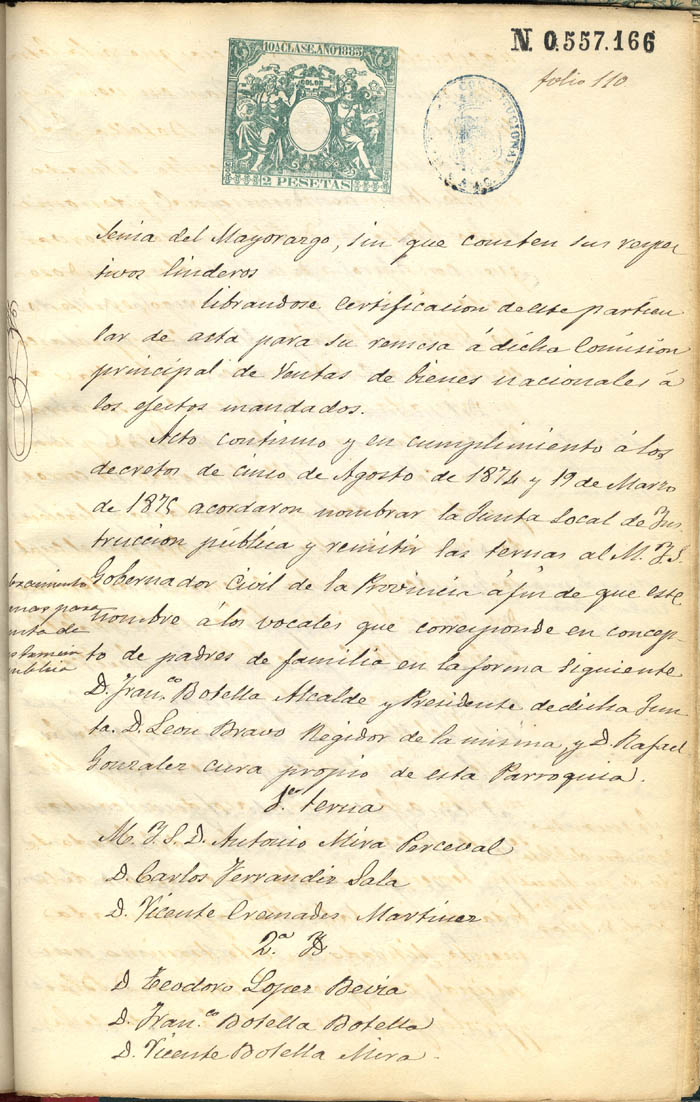 N. 0.557.166
folio 110
10A CLASE. AÑO 1883
2 PESETAS
CONSTITUCIONAL
Senia del Mayorazgo, sin que consten sus respec
tivos linderos
librandose certificacion de este particu
lar de acta para su remesa á dicha Comision
principal de Ventas de bienes nacionales á
los efectos mandados.
Acto continuo y en cumplimiento á los
decretos de cinco de Agosto de 1874 y 19 de Marzo
de 1875 acordaron nombrar la Junta Local de Ins
truccion pública y remitir las ternas al M. I. S.
Gobernador Civil de la Provincia á fin de que este
nombre á los vocales que corresponde en concep-
to de padres de familia en la forma siguiente
D. Fran.co Botella Alcalde y Presidente de dicha Jun
ta. D. Leon Bravo Regidor de la misma, y D. Rafael
Gonzalez cura propio de esta Parroquia.
1.er terna
M. I. S. D. Antonio Mira Perceval
D. Carlos Ferrandiz Sala
D. Vicente Cremades Martinez
2.a Id
D. Teodoro Lopez Bevia
D. Fran.co Botella Botella
D. Vicente Botella Mira
bramiento
nas para
nta de
struccion
ublica